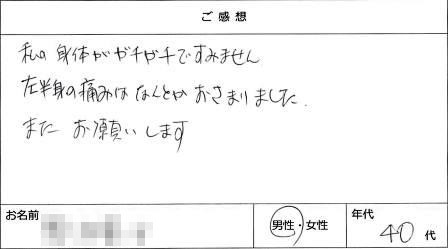 ご感想
私の身体がガチガチですみません
左半身の痛みはなんとかおさまりました.
またお願いします
お名前 男性・女性 年代 40代